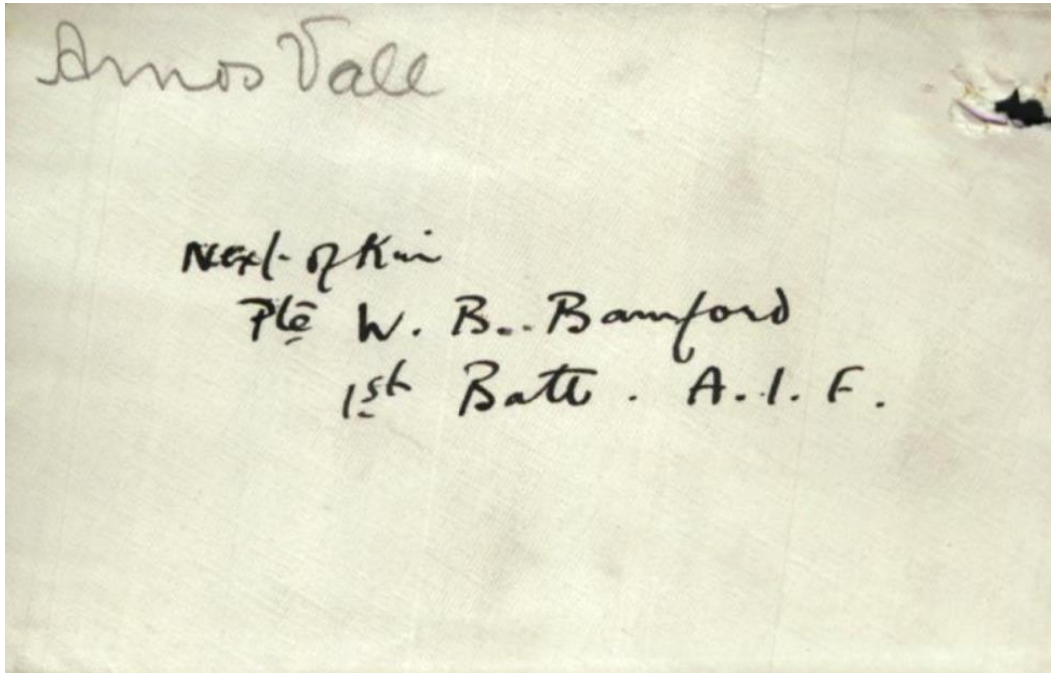 Arnos Vale
Next-of Kin
Pte W. B. Bamford
1st Batt. A.I.F.